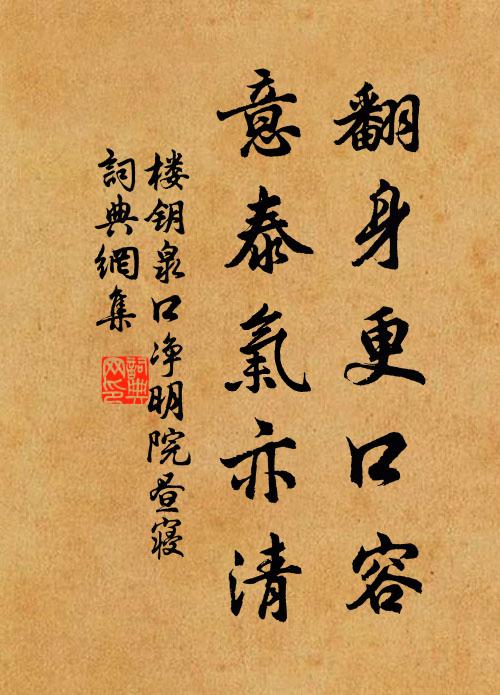 翻身更口容
意泰氣亦清
楼钥泉口净明院昼寝
詞典網集
詞典网印